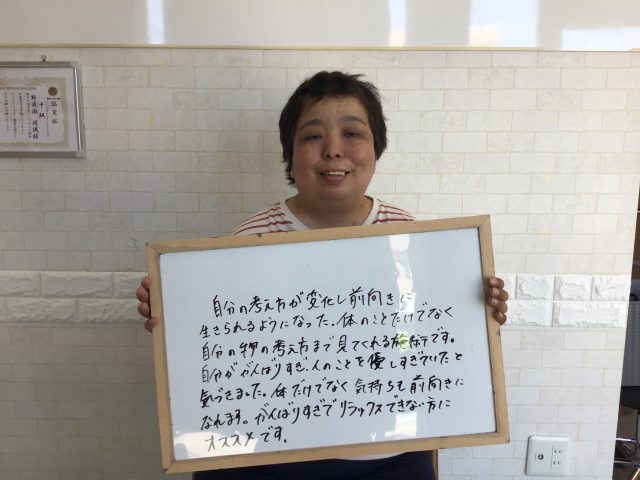 認定証
中級
自分の考え方が変化し前向きに
生きられるようになった。体のことだけでなく
自分の物の考え方まで見てくれる施術です。
自分ががんばりすぎ、人のことを優しすぎていたと
気づきました。体だけでなく気持ちも前向きに
なれます。がんばりすぎでリラックスできない方に
オススメです。